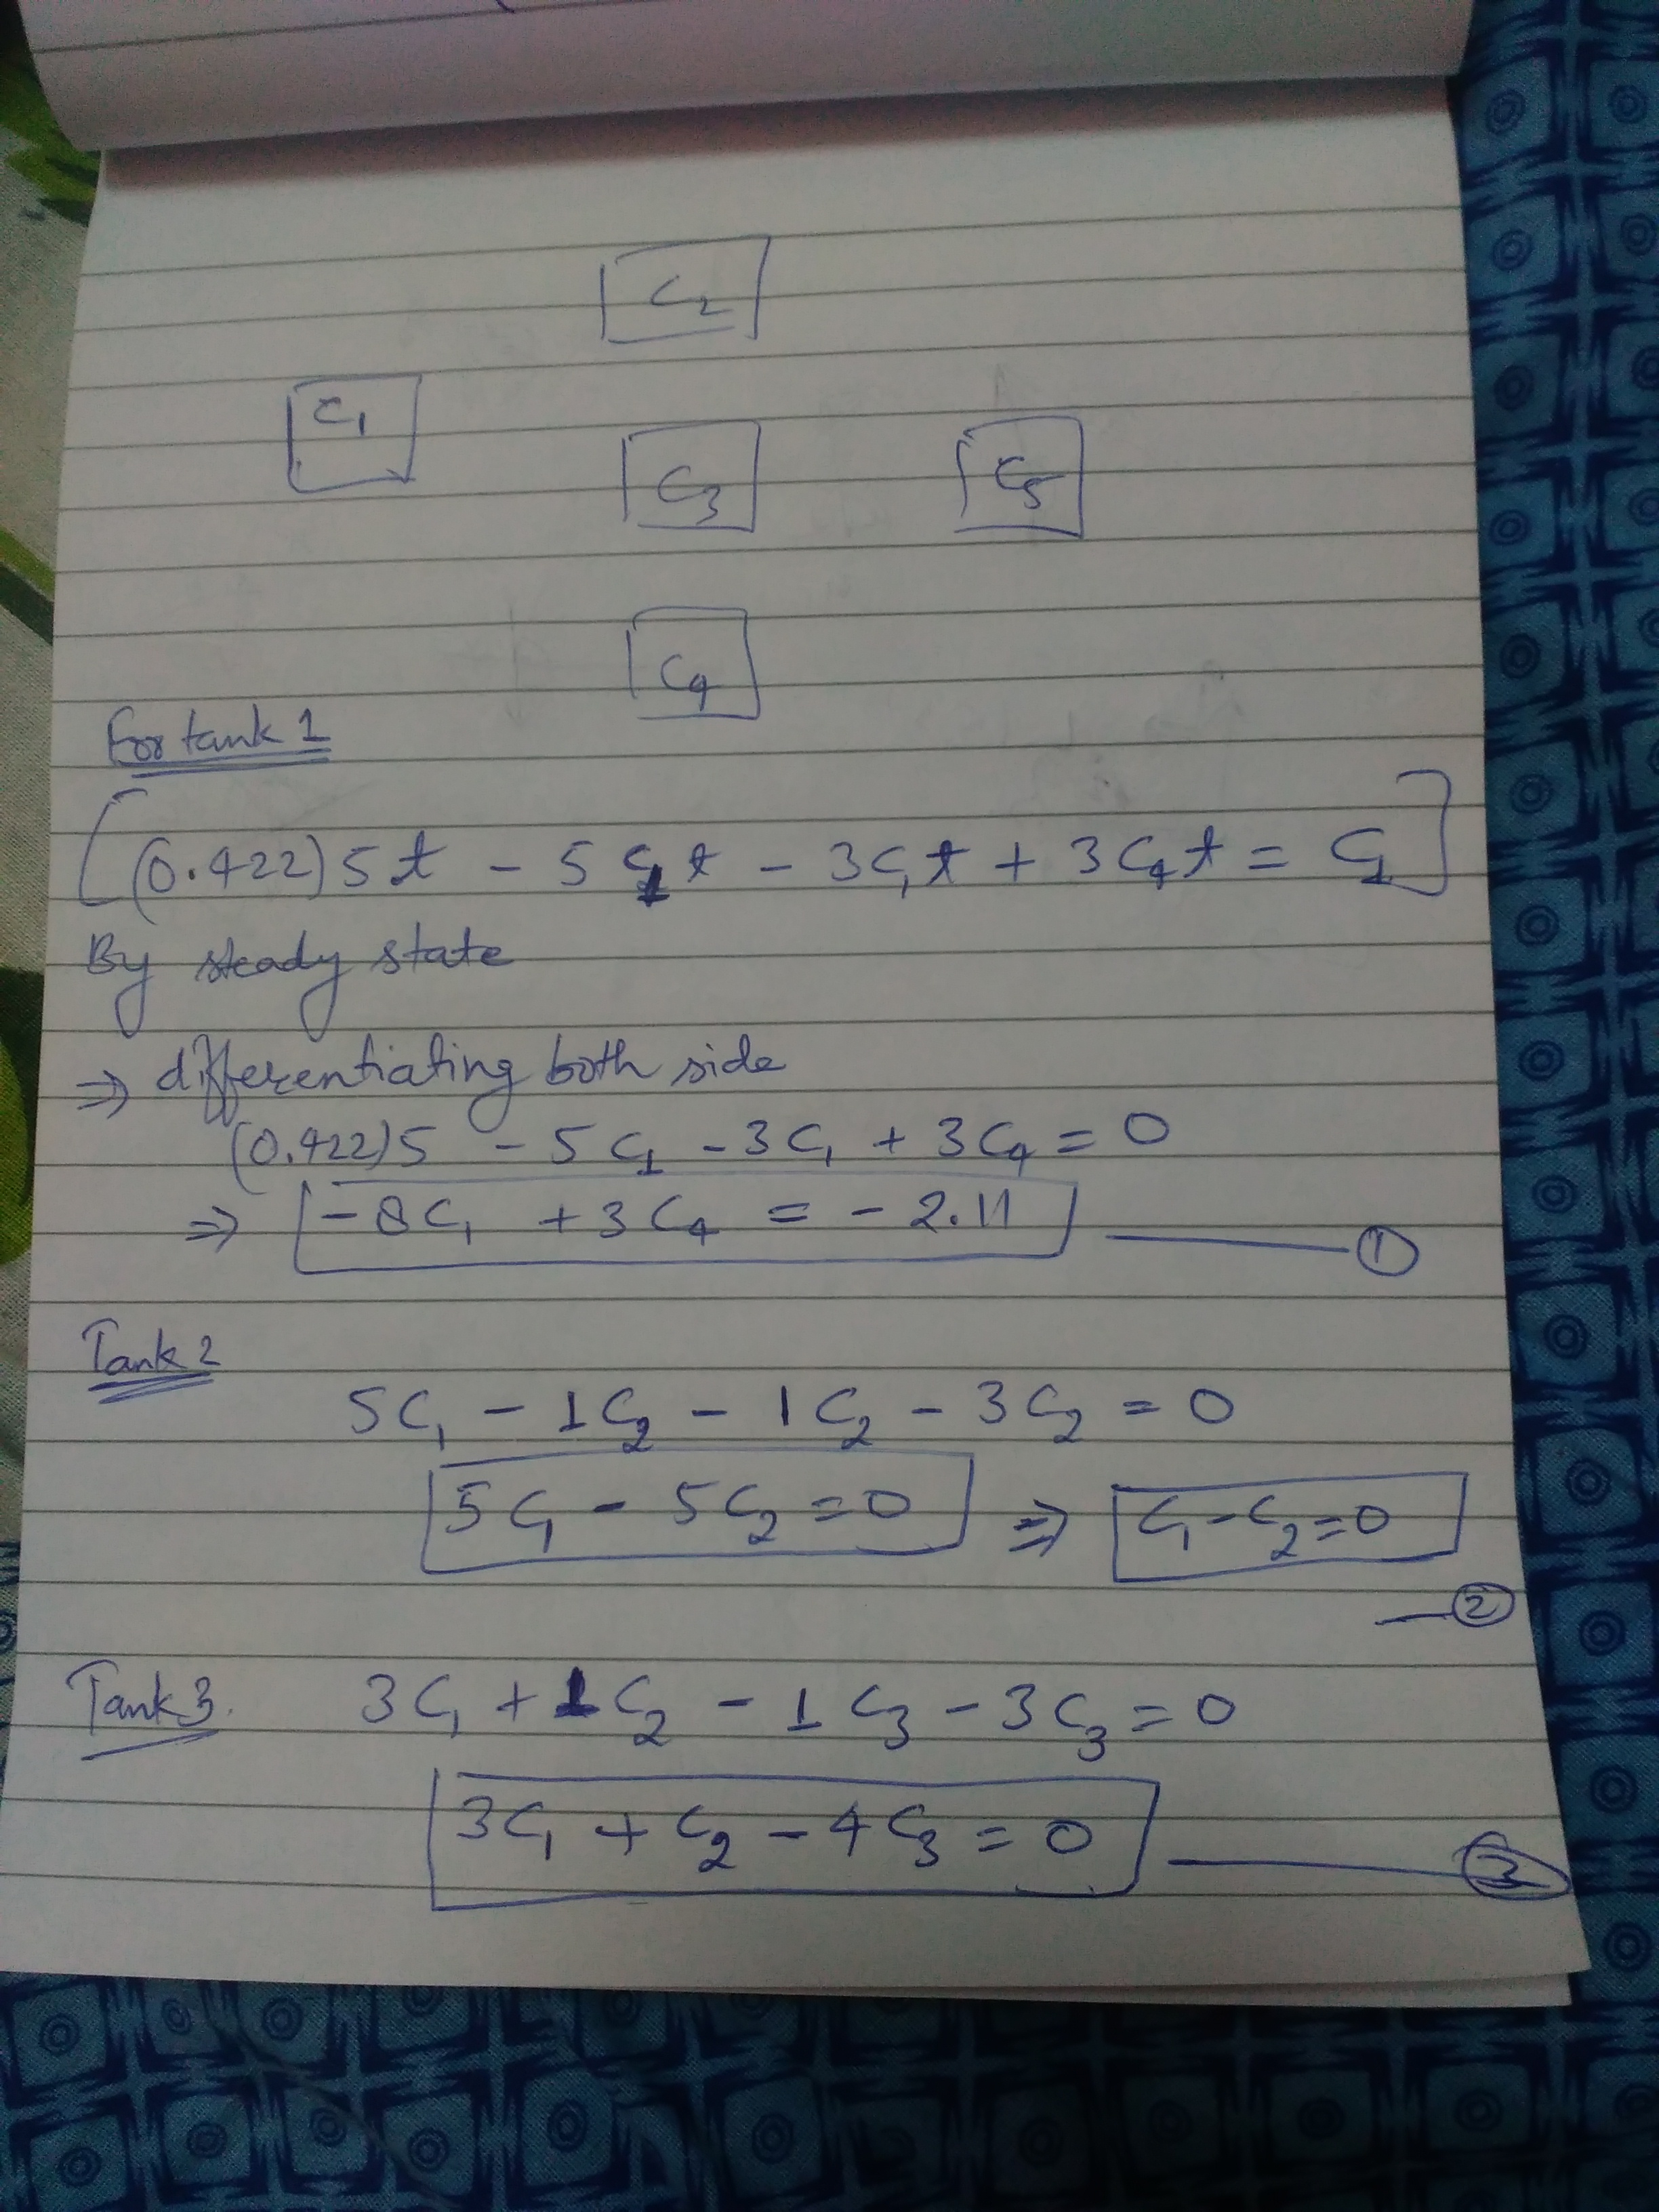 C₂
C₁
C₃
C₅
C₄
For tank 1
[(0.422)5t - 5C₁t - 3C₁t + 3C₄t = C₁]
By steady state
⇒ differentiating both side
(0.422)5 - 5C₁ - 3C₁ + 3C₄ = 0
⇒ -8C₁ + 3C₄ = -2.11 ——— ①
Tank 2
5C₁ - 1C₂ - 1C₂ - 3C₂ = 0
5C₁ - 5C₂ = 0 ⇒ C₁ - C₂ = 0
— ②
Tank 3. 3C₁ + 1C₂ - 1C₃ - 3C₃ = 0
3C₁ + C₂ - 4C₃ = 0 ——— ③